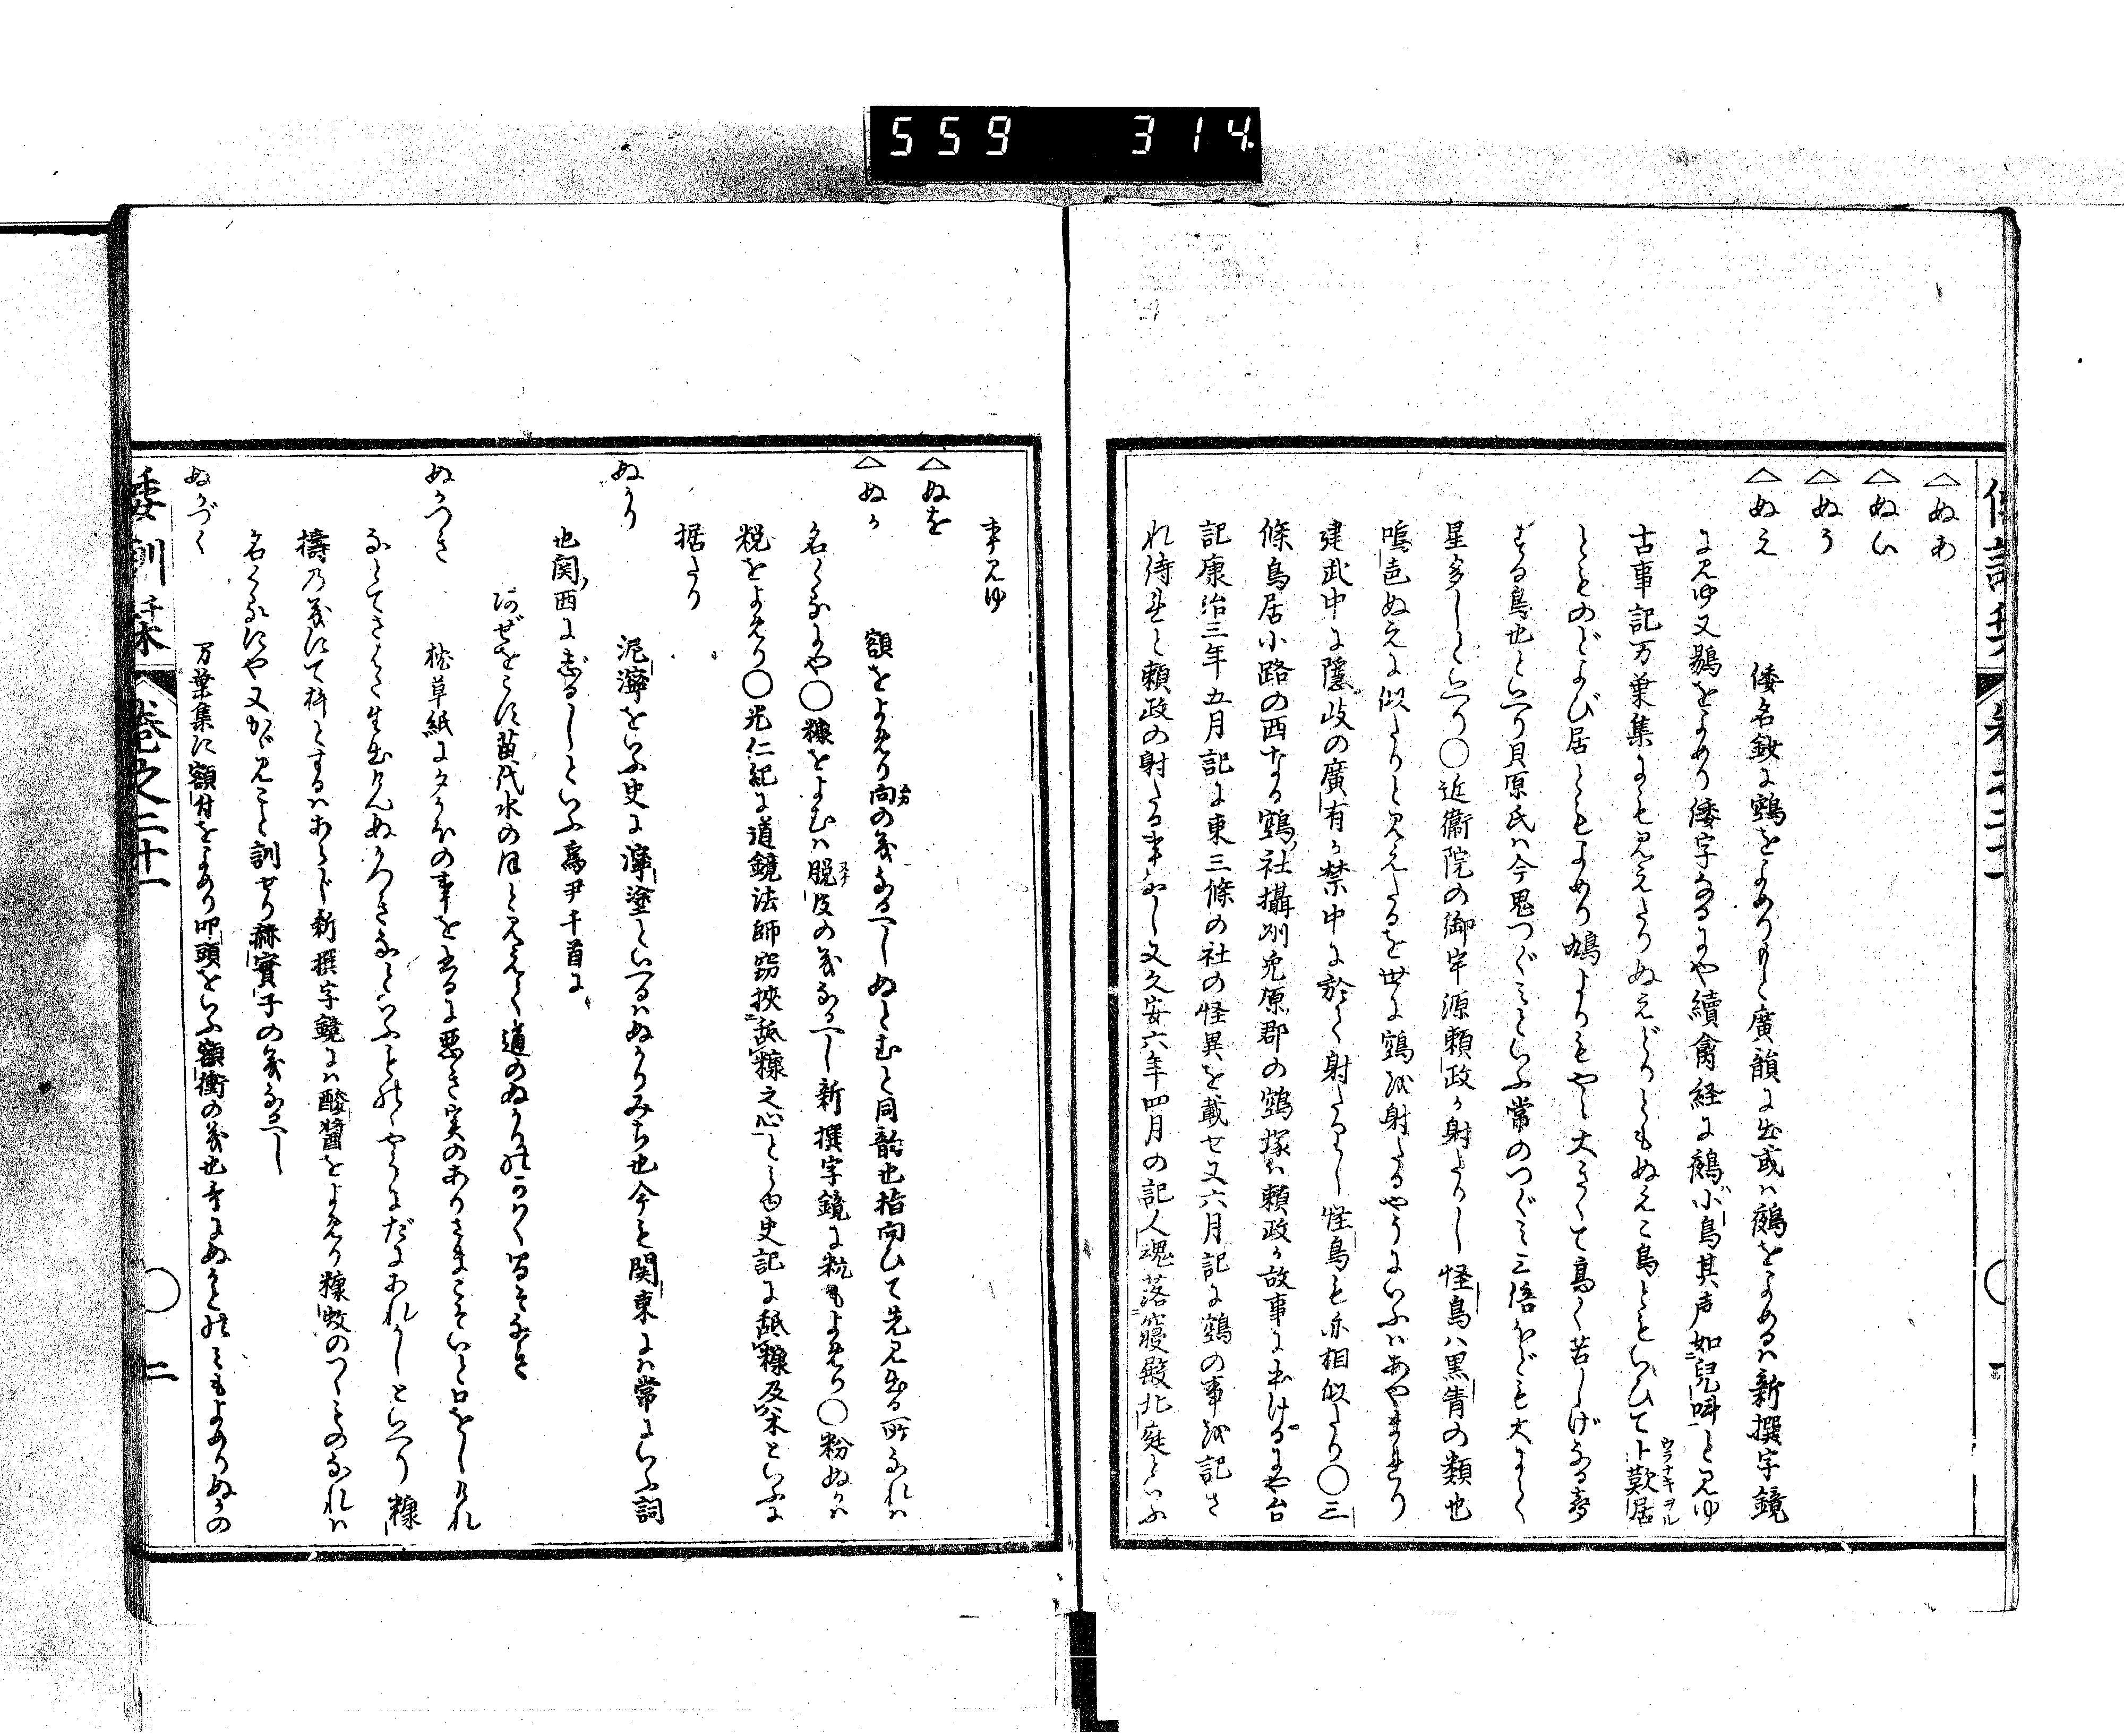 559 314
△ぬあ
△ぬい
△ぬう
△ぬえ
倭名鈔に鵼をよめりもと廣韻に出或は鵺をよめるは新撰字鏡
に見ゆ又鵽をよめり倭字なるにや續禽経に鵺ぶ鳥其声如兒呌と見ゆ
古事記万葉集にも見えたりぬえどりともぬえこ鳥ともいひて卜歎居ウラナキヲル
とものどよび居ともよめり鳩よりもやゝ大きくて高く苦しげなる声
する鳥也といへり貝原氏は今鬼つぐみといふ常のつぐみ三倍ほども大にして
星多しといへり〇近衛院の御宇源頼政が射たりし怪鳥ハ黒青の類也
鳴色ぬえに似たりと見えたるを世に鵼を射たるやうにいふはあやまれり
建武中に隠岐の廣有が禁中に於て射たりし怪鳥も亦相似たり〇三
條鳥居小路の西なる鵼ノ社攝州兎原郡の鵼塚は頼政が故事に本けるにや台
記康治三年五月記に東三條の社の怪異を載せ又六月記に鵼の事を記さ
れ侍れと頼政の射たる事なし又久安六年四月の記人魂落寝殿北庭といふ
事見ゆ
△ぬを
△ぬか
額をよめり向の義なるべしぬとむと同韻也指向ひて先見出る所なれは
名くるにや〇糠をよむは脱ヌケ皮の義なるべし新撰字鏡に粇もよめり〇粉ぬかは
粃をよめり〇光仁紀に道鏡法師窃挾舐糠之心と見ゆ史記に舐糠及米といふに
据たり
ぬかり
泥濘をいふ史に濘塗といへるはぬかりみち也今も関東には常にいふ詞
也関ノ西に志るしといふ為尹千首に
あぜをこす苗代水のほと見えて道のぬかりのかわくまぞなき
ぬかづき
枕草紙に夕かほの事をいへるに悪き実のありさまこそいと口をしけれ
なとてさはた生出けんぬかつきなといふものゝやうにだにあれかしといへり糠
擣乃義にて杵とするはあらじ新撰字鏡には酸醤をよめり糠蚊のつくものなれは
名くるにや又かがみこと訓せり赫實子の義なるべし
ぬかづく
万葉集に額付をよめり叩頭をいふ額衝の義也
倭訓栞 卷之二十一 〇 二